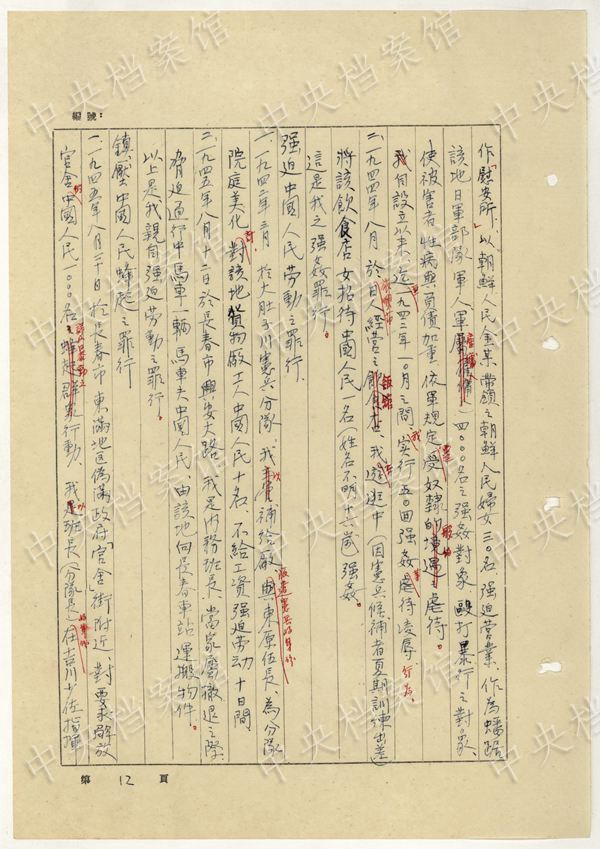 編號：
作「慰安所」以朝鮮人民金某帶領之朝鮮人民婦女三〇名強迫营業、作為蟠踞
該地日軍部隊軍人軍属(雇傭)四〇〇〇名之强姦对象、毆打暴行之對象、
使被害者性病與負債加重、依軍規定受奴隸的虐待。
我自設立以来、迄一九四二年一〇月之間、实行五〇回强姦虐待凌辱行為。
二、一九四四年八月 於日人經营之飲食店、我遊逛中(因憲兵候補者夏期訓練出差)
將該飲食店女招待中國人民一名(姓名不明十六歲)强姦。
這是我之强姦罪行。
强迫中國人民劳動之罪行
一、一九四二年三月 於大肚子川憲兵分隊、我補給厰與東原伍長、為分隊
院庭美化、對該地貨物厰工人中國人民十名、不給工資强迫劳动十日間
二、一九四五年八月十二日於長春市興安大路、我是内務班長、當家屬撤退之際
脅迫通行中馬車一輛馬車夫中國人民、由該地向長春車站運搬物件。
以上是我親自强迫劳動之罪行。
鎮壓中國人民蜂起之罪行
一、一九四五年八月二十日於長春市東滿地區偽滿政府「官舍」街附近、對要求解放
官舍中國人民一〇〇〇名之群衆行動、我以班長(分隊長)在吉川少佐指揮
第 12 頁
中央档案馆